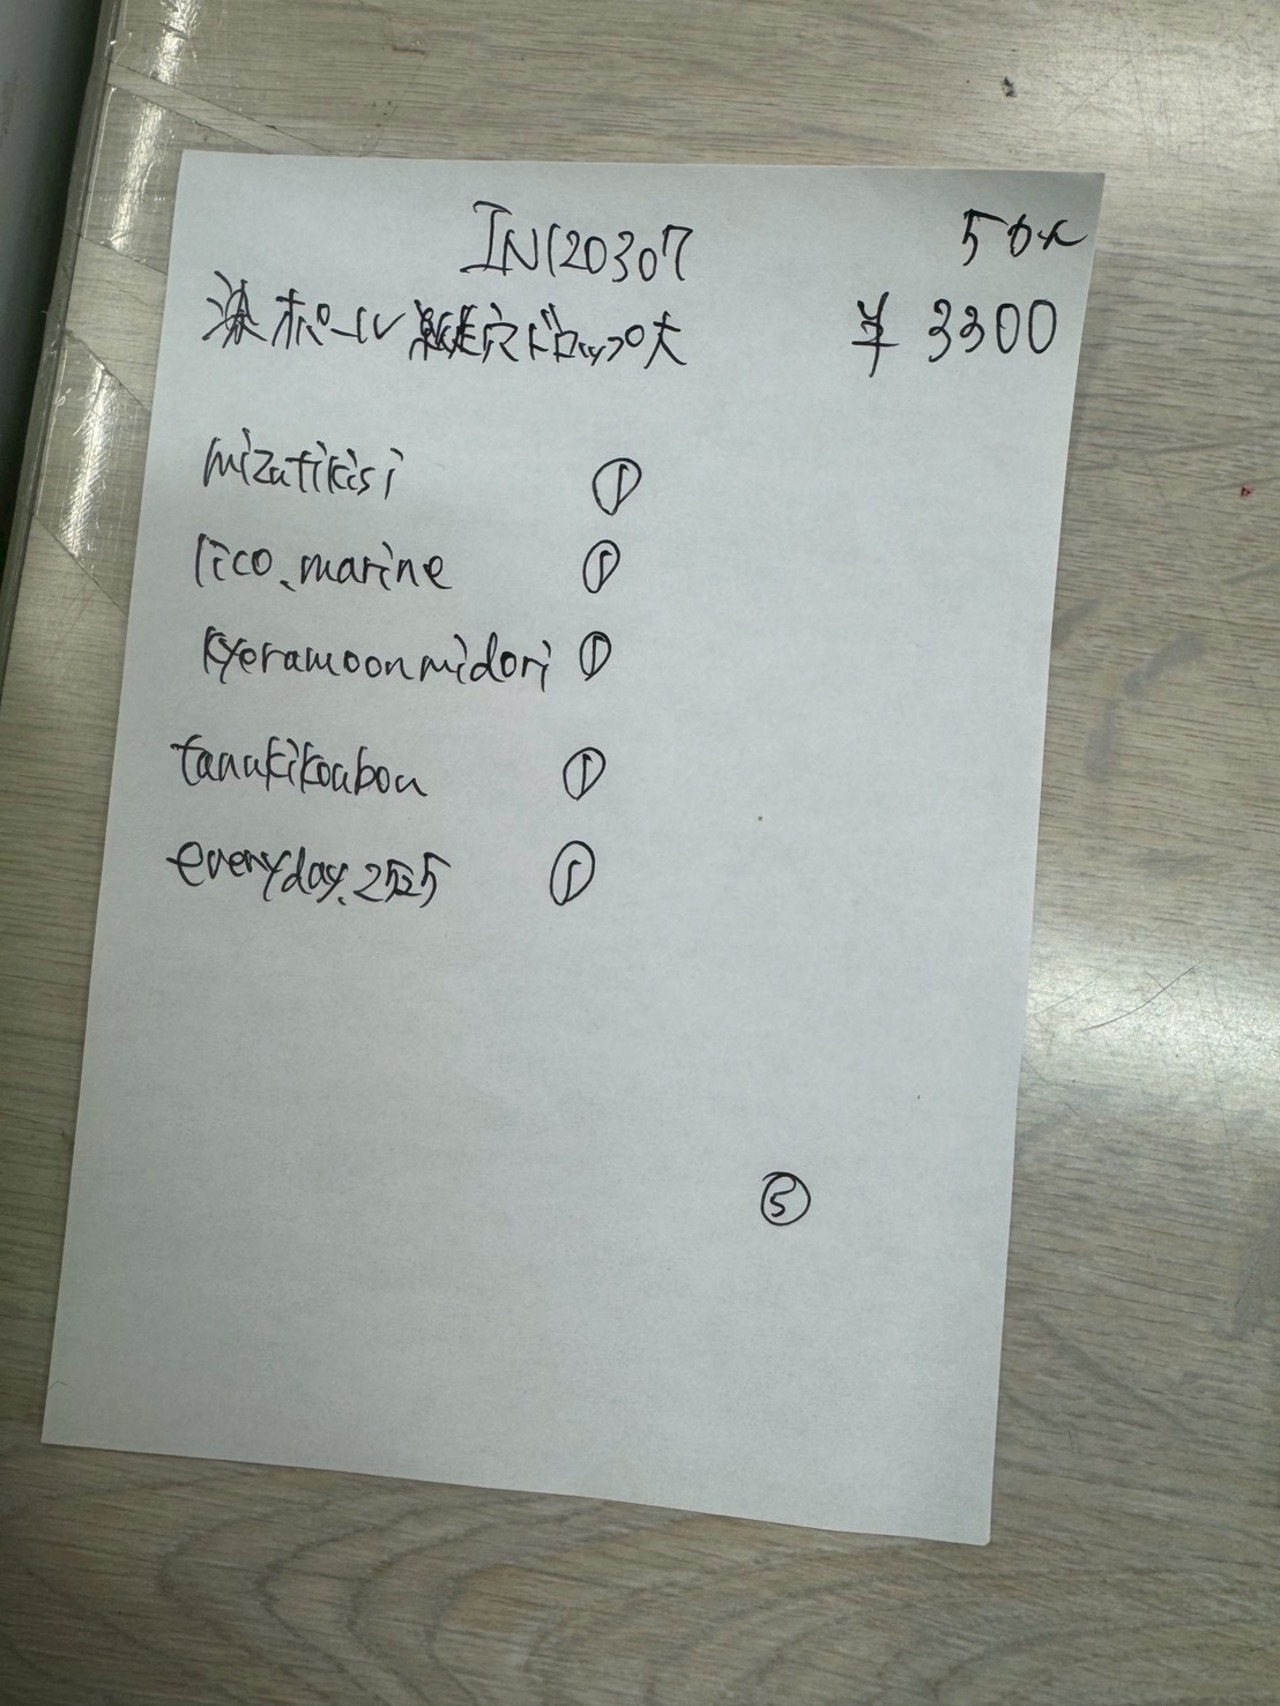 IN120307
50x
ポール縦穴ドロップ大 ¥3300
mizutikisi ①
lico.marine ①
kyeramoonmidori ①
tanukikoubou ①
everyday.2525 ①
⑤